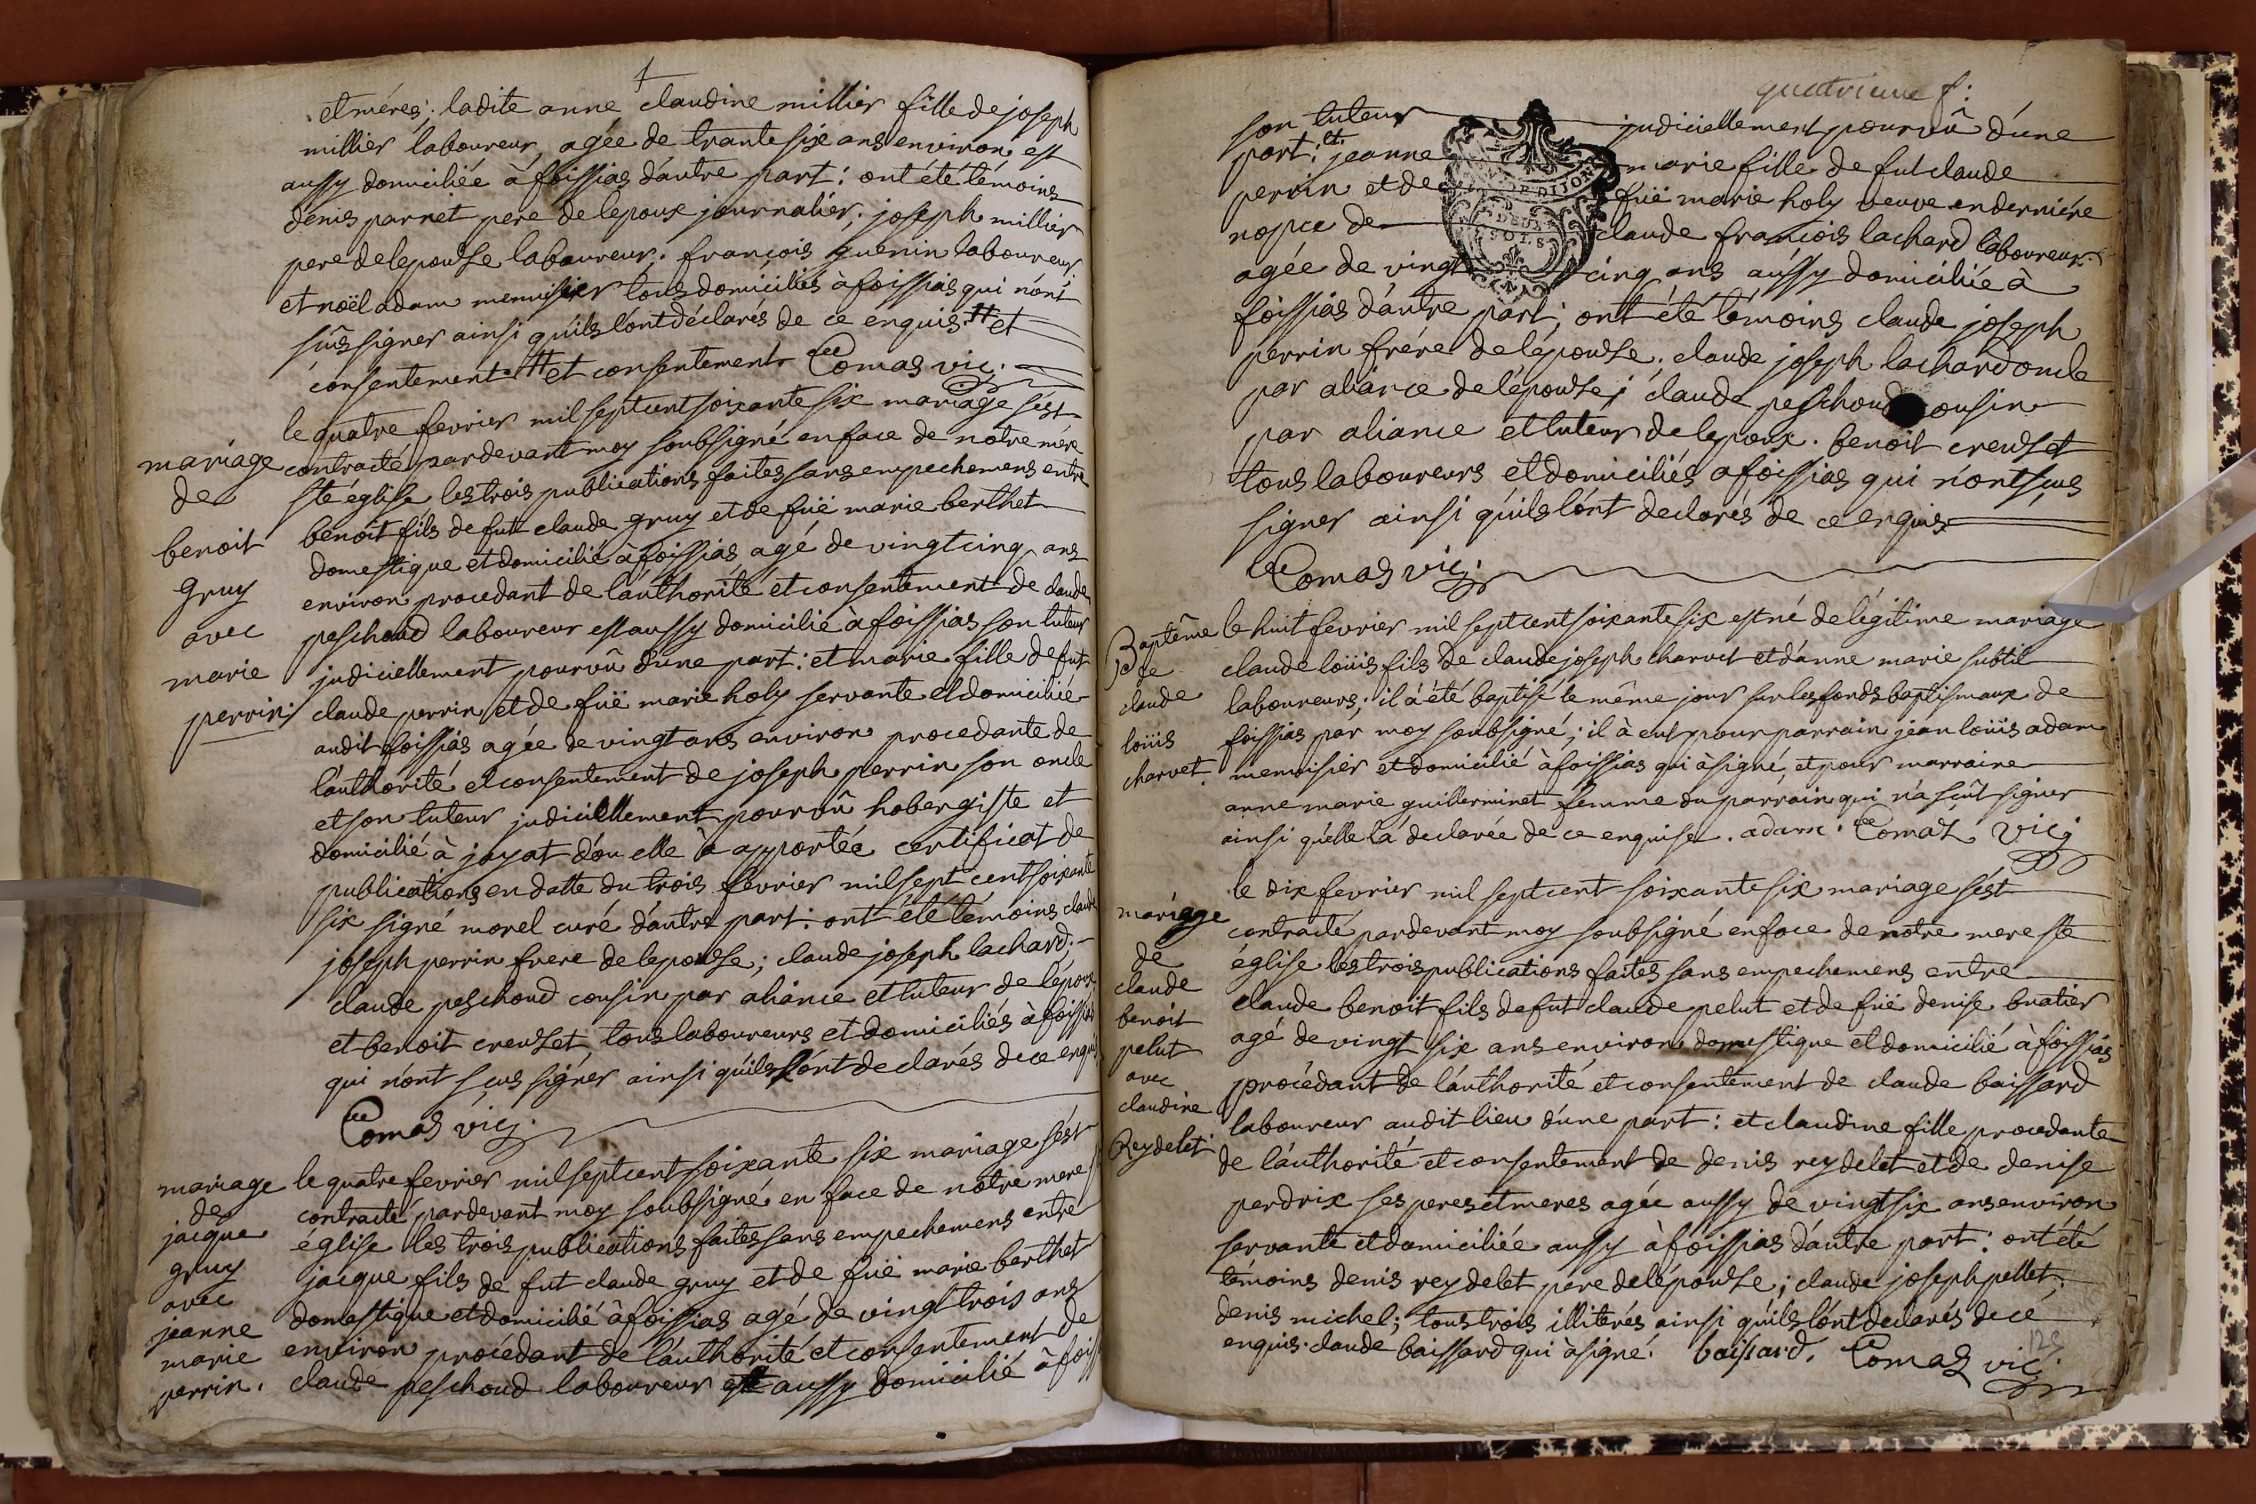 et méres; ladite anne claudine millier fille de joseph
millier laboureur, agée de trante six ans environ est
aussy domiciliée à foissias d'autre part: ont été témoins
denis parret pere de lepoux journalier; joseph millier
pere de lepouse laboureur; françois guenin laboureur
et noël adam menuisier tous domiciliés à foissias qui n'ont
sûs signer ainsi qu'ils l'ont déclarés de ce enquis # et
consentement # et consentement Comas vic:
mariage
de
benoit
gruy
avec
marie
perrin
le quatre fevrier mil sept cent soixante six mariage s'est
contracté pardevant moy soubsigné en face de notre mére
ste église les trois publications faites sans empechemens entre
benoit fils de fut claude gruy et de füe marie berthet
domestique et domicilié à foissias agé de vingt cinq ans
environ procedant de l'authorité et consentement de claude
peschoud laboureur est aussy domicilié à foissias son tuteur
judiciellement pourvû d'une part: et marie fille de fut
claude perrin et de füe marie holy servante et domiciliée
audit foissias agée de vingt ans environ procedante de
l'authorité et consentement de joseph perrin son oncle
et son tuteur judiciellement pourvû hobergiste et
domicilié à jayat d'ou elle à apportée certificat de
publications en datte du trois fevrier mil sept cent soixante
six signé morel curé d'autre part: ont été témoins claude
joseph perrin frere de lepouse; claude joseph lachard;
claude peschoud cousin par aliance et tuteur de l'époux
et benoit creuset, tous laboureurs et domiciliés à foissias
qui n'ont sçus signer ainsi qu'ils l'ont declarés de ce enquis
Comas vic;
mariage
de
jacque
gruy
avec
jeanne
marie
perrin.
le quatre fevrier mil sept cent soixante six mariage s'est
contracté pardevant moy soubsigné en face de notre mere
église les trois publications faites sans empechemens entre
jacque fils de fut claude gruy et de füe marie berthet
domestique et domicilié à foissias agé de vingt trois ans
environ procédant de l'authorité et consentement de
claude peschoud laboureur est aussy domicilié à foiss
quatrieme f:
son tuteur judiciellement pourvû d'une
part: et jeanne marie fille de fut claude
perrin et de füe marie holy veuve en derniére
nopce de claude françois lachard laboureur.
agée de vingt cinq ans aussy domiciliée à
foissias d'autre part; ont été témoins claude joseph
perrin frére de l'épouse; claude joseph lachard oncle
par aliance de l'épouse; claude peschoud cousin
par aliance et tuteur de lepoux. benoit creuset
tous laboureurs et domiciliés a foissias qui n'ont sçus
signer ainsi qu'ils l'ont declarés de ce enquis
Comas vic;
Baptême
de
claude
loüis
charvet.
le huit fevrier mil sept cent soixante six est né de légitime mariage
claude loüis fils de claude joseph charvet et d'anne marie subtil
laboureurs; il à été baptisé le même jour sur les fonds baptismaux de
foissias par moy soubsigné; il à eut pour parrain jean loüis adam
menuisier et domicilié à foissias qui à signé, et pour marraine
anne marie guillerminet femme du parrain qui n'a sçût signer
ainsi qu'elle l'a declarée de ce enquise. adam. Comas vic;
mariage
de
claude
benoit
pelut
avec
claudine
Reydelet
le dix fevrier mil sept cent soixante six mariage s'est
contracté pardevant moy soubsigné en face de notre mere ste
église les trois publications faites sans empechemens entre
claude benoit fils de fut claude pelut et de füe denise buatier
agé de vingt six ans environ domestique et domicilié à foissias
procédant de l'authorité et consentement de claude baissard
laboureur audit lieu d'une part: et claudine fille procedante
de l'authorité et consentement de denis reydelet et de denise
perdrix ses peres et meres agée aussy de vingt six ans environ
servante et domiciliée aussy à foissias d'autre part: ont été
témoins denis reydelet pere de lépouse; claude joseph pellet;
denis michel; tous trois illiterés ainsi qu'ils l'ont declarés de cé
enquis. claude baissard qui à signé. baissard. Comas vic;